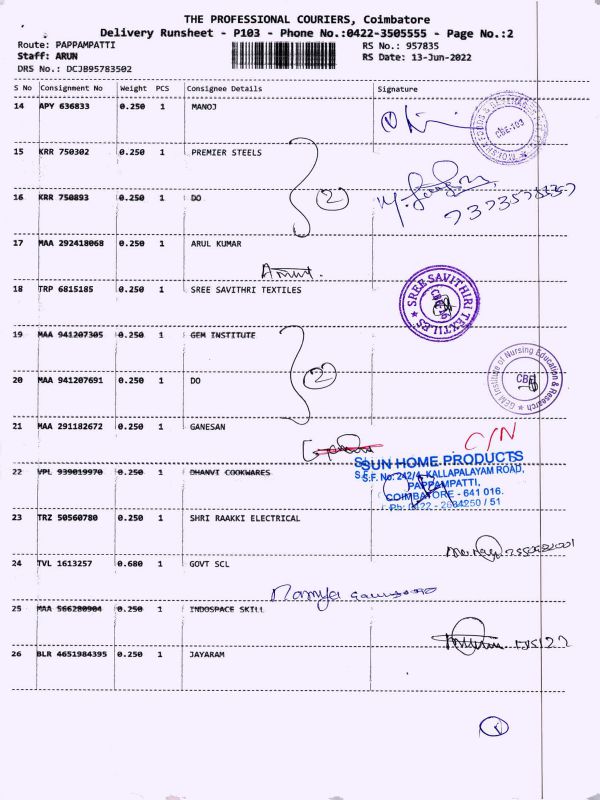 THE PROFESSIONAL COURIERS, Coimbatore
Delivery Runsheet - P103 - Phone No.:0422-3505555 - Page No.:2
Route: PAPPAMPATTI RS No.: 957835
Staff: ARUN RS Date: 13-Jun-2022
DRS No.: DCJB95783502
S No Consignment No Weight PCS Consignee Details Signature
14 APY 636833 0.250 1 MANOJ
CBE-103
15 KRR 750302 0.250 1 PREMIER STEELS
2
16 KRR 750893 0.250 1 DO
17 MAA 292418068 0.250 1 ARUL KUMAR
18 TRP 6815185 0.250 1 SREE SAVITHRI TEXTILES
★ SREE SAVITHRI TEXTILES
19 MAA 941207305 0.250 1 GEM INSTITUTE
2
20 MAA 941207691 0.250 1 DO
GEM Institute of Nursing Education & Research ★
CBE
21 MAA 291182672 0.250 1 GANESAN
C/N
SUN HOME PRODUCTS
S.F. No. 242/4, KALLAPALAYAM ROAD,
PAPPAMPATTI,
COIMBATORE - 641 016.
Ph: 0422 - 2684250 / 51
22 VPL 939019970 0.250 1 DHANVI COOKWARES
23 TRZ 50560780 0.250 1 SHRI RAAKKI ELECTRICAL
24 TVL 1613257 0.680 1 GOVT SCL
25 MAA 566280904 0.250 1 INDOSPACE SKILL
26 BLR 4651984395 0.250 1 JAYARAM